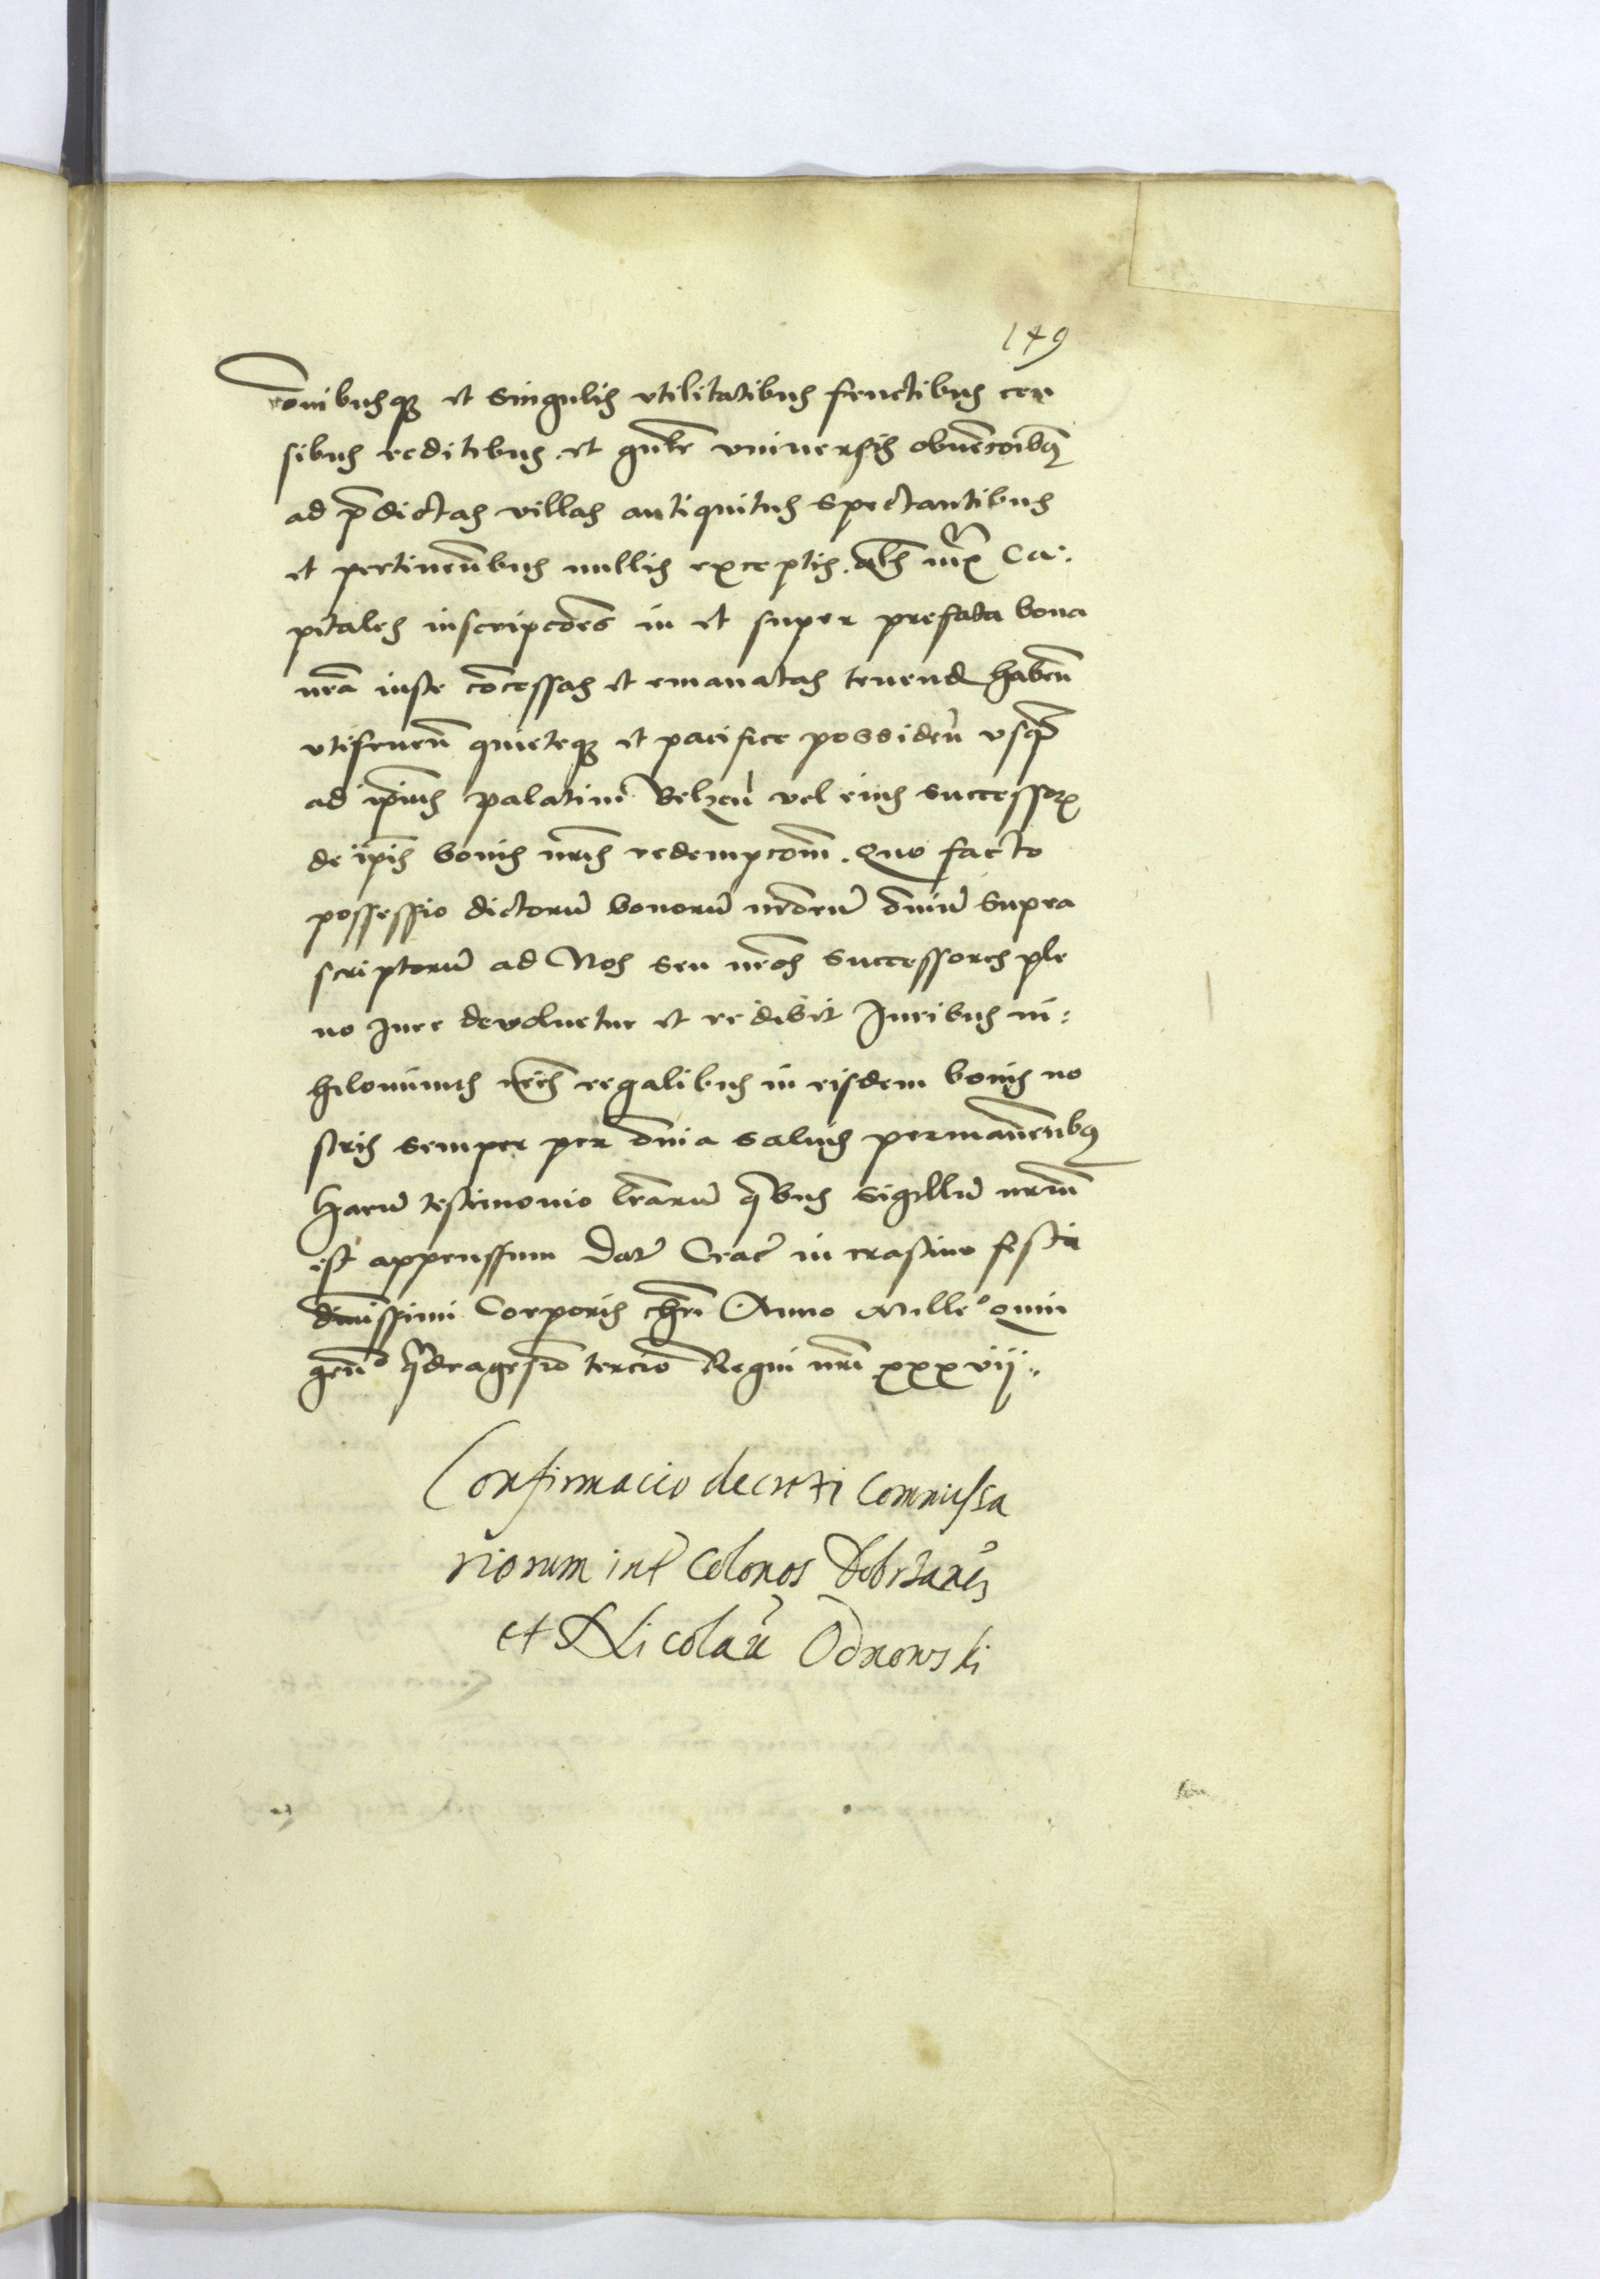 149
o͞mibusq3 et singulis vtilitatibus fructibus cen
sibus reditibus et gn͞lr vniuersis obuenc͞oib9
ad p͞dictas villas antiquitus spectantibus
et pertinen͞bus nullis exceptis. Ca-
pitales inscripc͞oes in et super prefata bona
nr͞a iuste co͞cessas et emanatas tenend haben͞
vtifruen͞ quieteq3 et pacifice possiden͞ vsq͞
ad ip͞ius palatini Belzen͞ vel eius successor͞
de ip͞is bonis nr͞is redempc͞oem. Quo facto
possessio dictoru͞ bonoru͞ nr͞oru͞ o͞miu͞ supra
scriptoru͞ ad Nos seu nr͞os successores ple
no Jure deuoluetur et redibit Juribus ni-
hilominus nr͞is regalibus in eisdem bonis no
stris semper per o͞mia saluis permane͞nb9
Haru͞ testimonio lr͞aru͞ q͞bus sigillu͞ nr͞um
est appenssum Dat͞ Crac͞ in crastino festi
diui͞ssimi Corporis chr͞i Anno Mille͞o Quin
gen͞o q͞dragesi͞o tercio Regni nr͞i xxxvij.
Confirmacio decreti Commissa
riorum int͞ Colonos Dobrzanen͞
et Nicolau͞ Odnowski